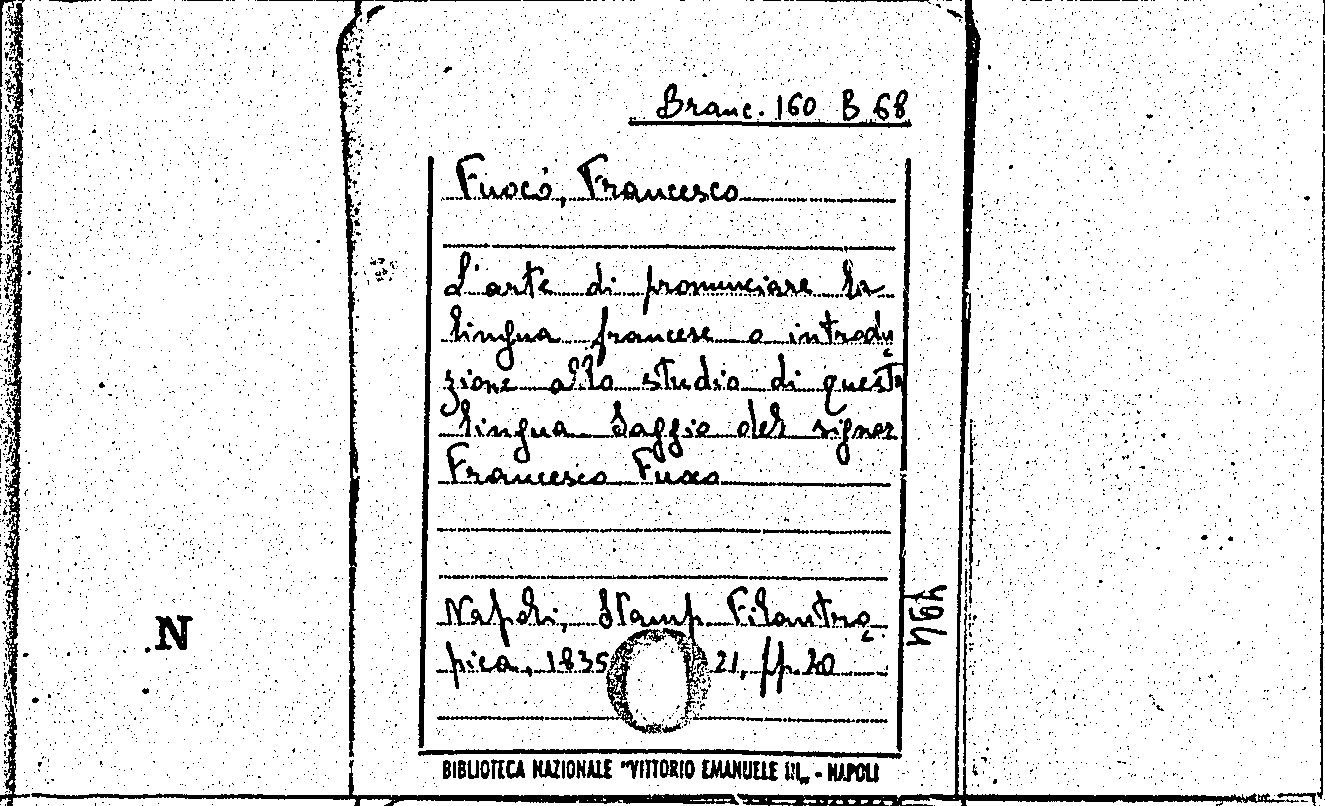 Branc. 160 B 68
Fuoco, Francesco
L'arte di pronunciare la
lingua francese o introdu
zione allo studio di questa
lingua Saggio del signor
Francesco Fuoco
Napoli, Stamp. Filantro
pica, 1835 21, pp. 20
N
BIBLIOTECA NAZIONALE "VITTORIO EMANUELE III„ - NAPOLI